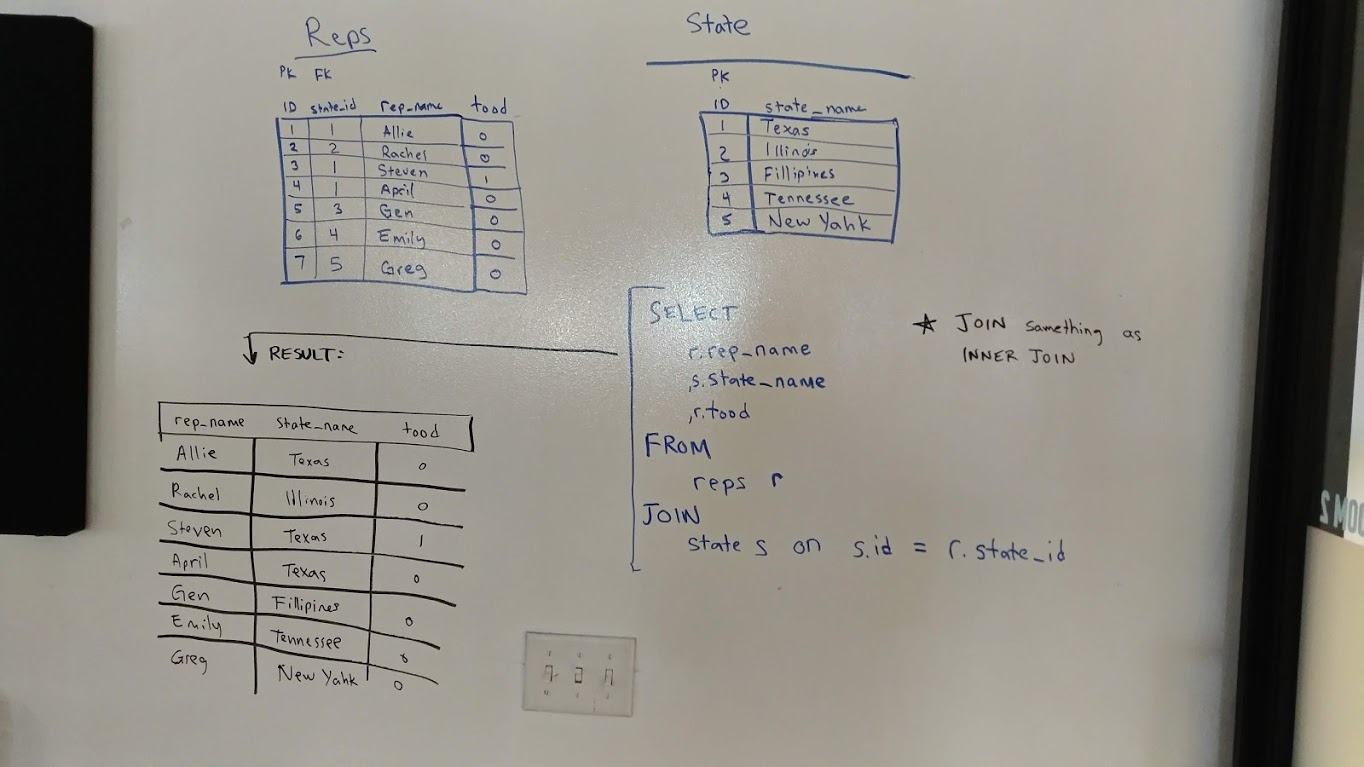 Reps
PK FK
ID state_id rep_name tood
1 1 Allie 0
2 2 Rachel 0
3 1 Steven 1
4 1 April 0
5 3 Gen 0
6 4 Emily 0
7 5 Greg 0
State
PK
ID state_name
1 Texas
2 Illinois
3 Fillipines
4 Tennessee
5 New Yahk
SELECT
r.rep_name
,s.state_name
,r.tood
FROM
reps r
JOIN
state s on s.id = r.state_id
★ JOIN samething as
INNER JOIN
RESULT:
rep_name state_name tood
Allie Texas 0
Rachel Illinois 0
Steven Texas 1
April Texas 0
Gen Fillipines 0
Emily Tennessee 0
Greg New Yahk 0